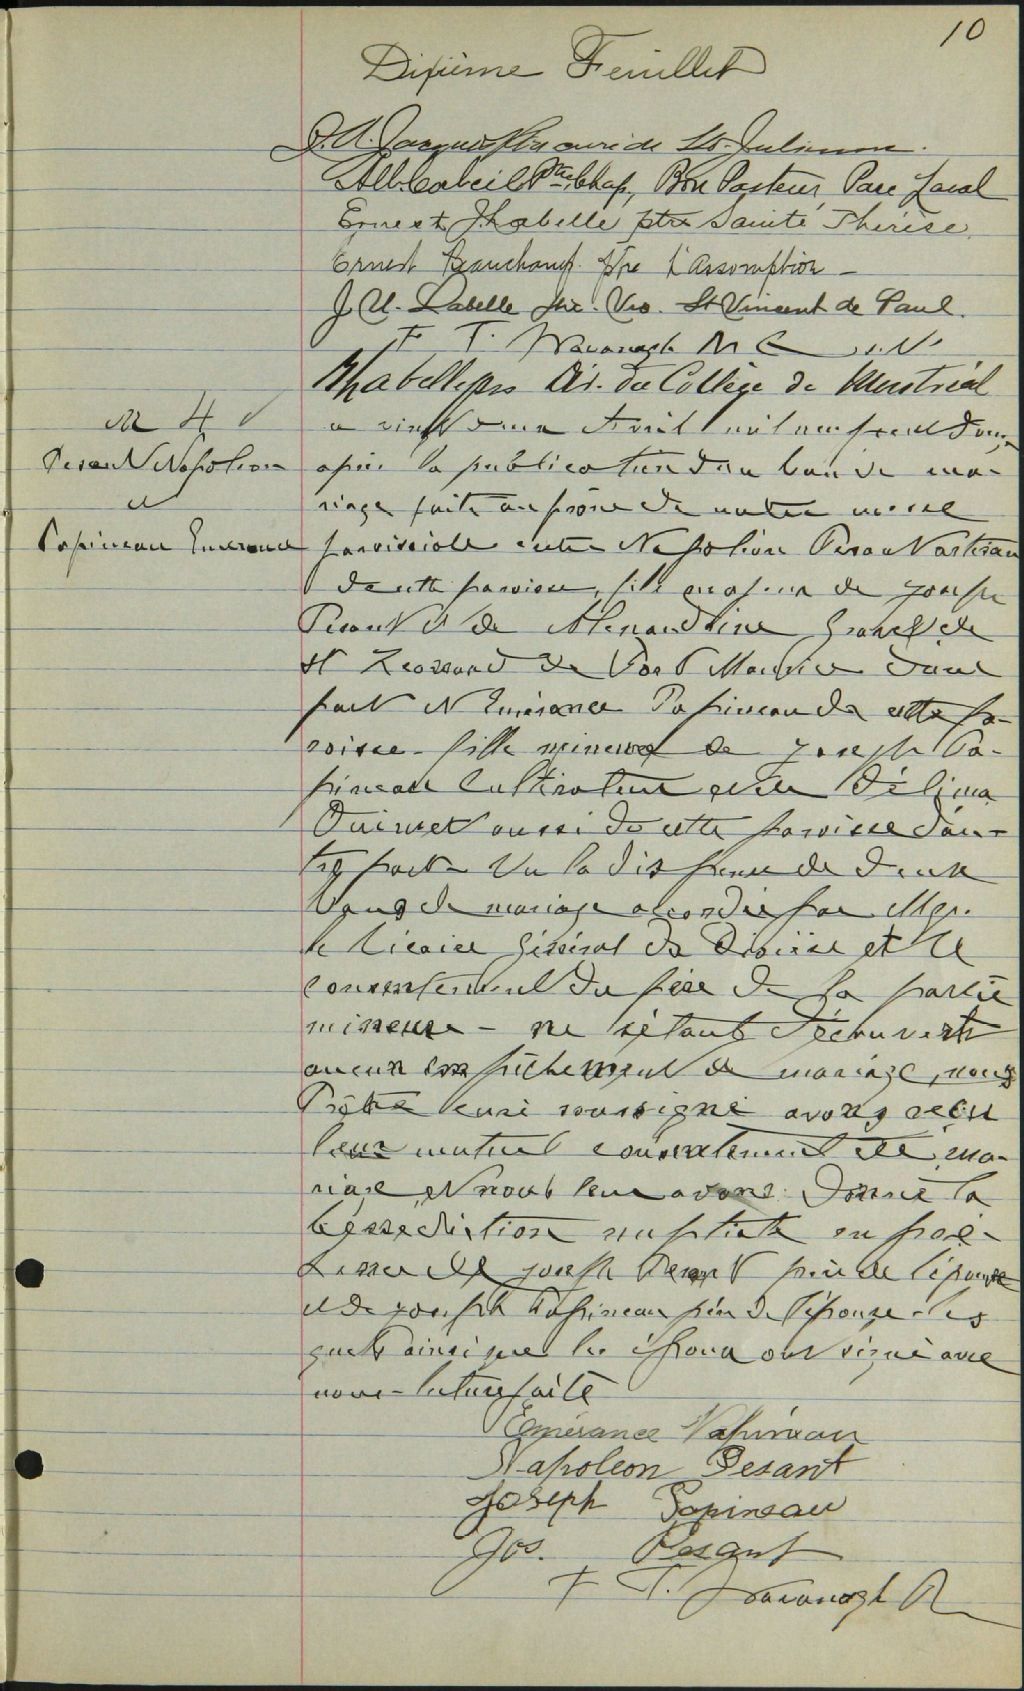 10
Dixième Feuillet
curé de St-Julienne.
Alb. Corbeil Ptre Chap, Bon Pasteur, Parc Laval
Ernest J. Labelle ptre Sainte Thérèse
Ernest Beauchamp. Ptre L'Assomption –
J. U. Labelle Ptr. Vic. St Vincent de Paul.
F. T. Kavanagh
Labelle ptre Dir. du Collège de Montréal
M 4
Pesant Napoléon
et
Papineau Emérance
Avril mil neuf cent douze
après la publication d'un ban de ma-
riage faite au prône de notre messe
paroissiale entre Napoléon Pesant artisan
de cette paroisse, fils majeur de Joseph
Pesant et de Alexandrine Gravel de
St Léonard de Port Maurice d'une
part et Emérance Papineau de cette pa-
roisse – fille mineure de Joseph Pa-
pineau Cultivateur et de Délima
Ouimet aussi de cette paroisse d'au-
tre part – Vu la dispense de deux
bans de mariage accordée par Mgr.
le Vicaire Général du Diocèse et le
consentement du père de la partie
mineure – ne s'étant découvert
aucun empêchement de mariage, nous
Prêtre curé soussigné avons reçu
leur mutuel consentement de ma-
riage et nous leur avons donné la
bénédiction nuptiale en pré-
sence de Joseph Pesant père de l'époux
et de Joseph Papineau père de l'épouse – les
quels ainsi que les époux ont signé avec
nous – lecture faite
Emérance Papineau
Napoleon Pesant
Joseph Papineau
Jos. Pesant
F. T. Kavanagh